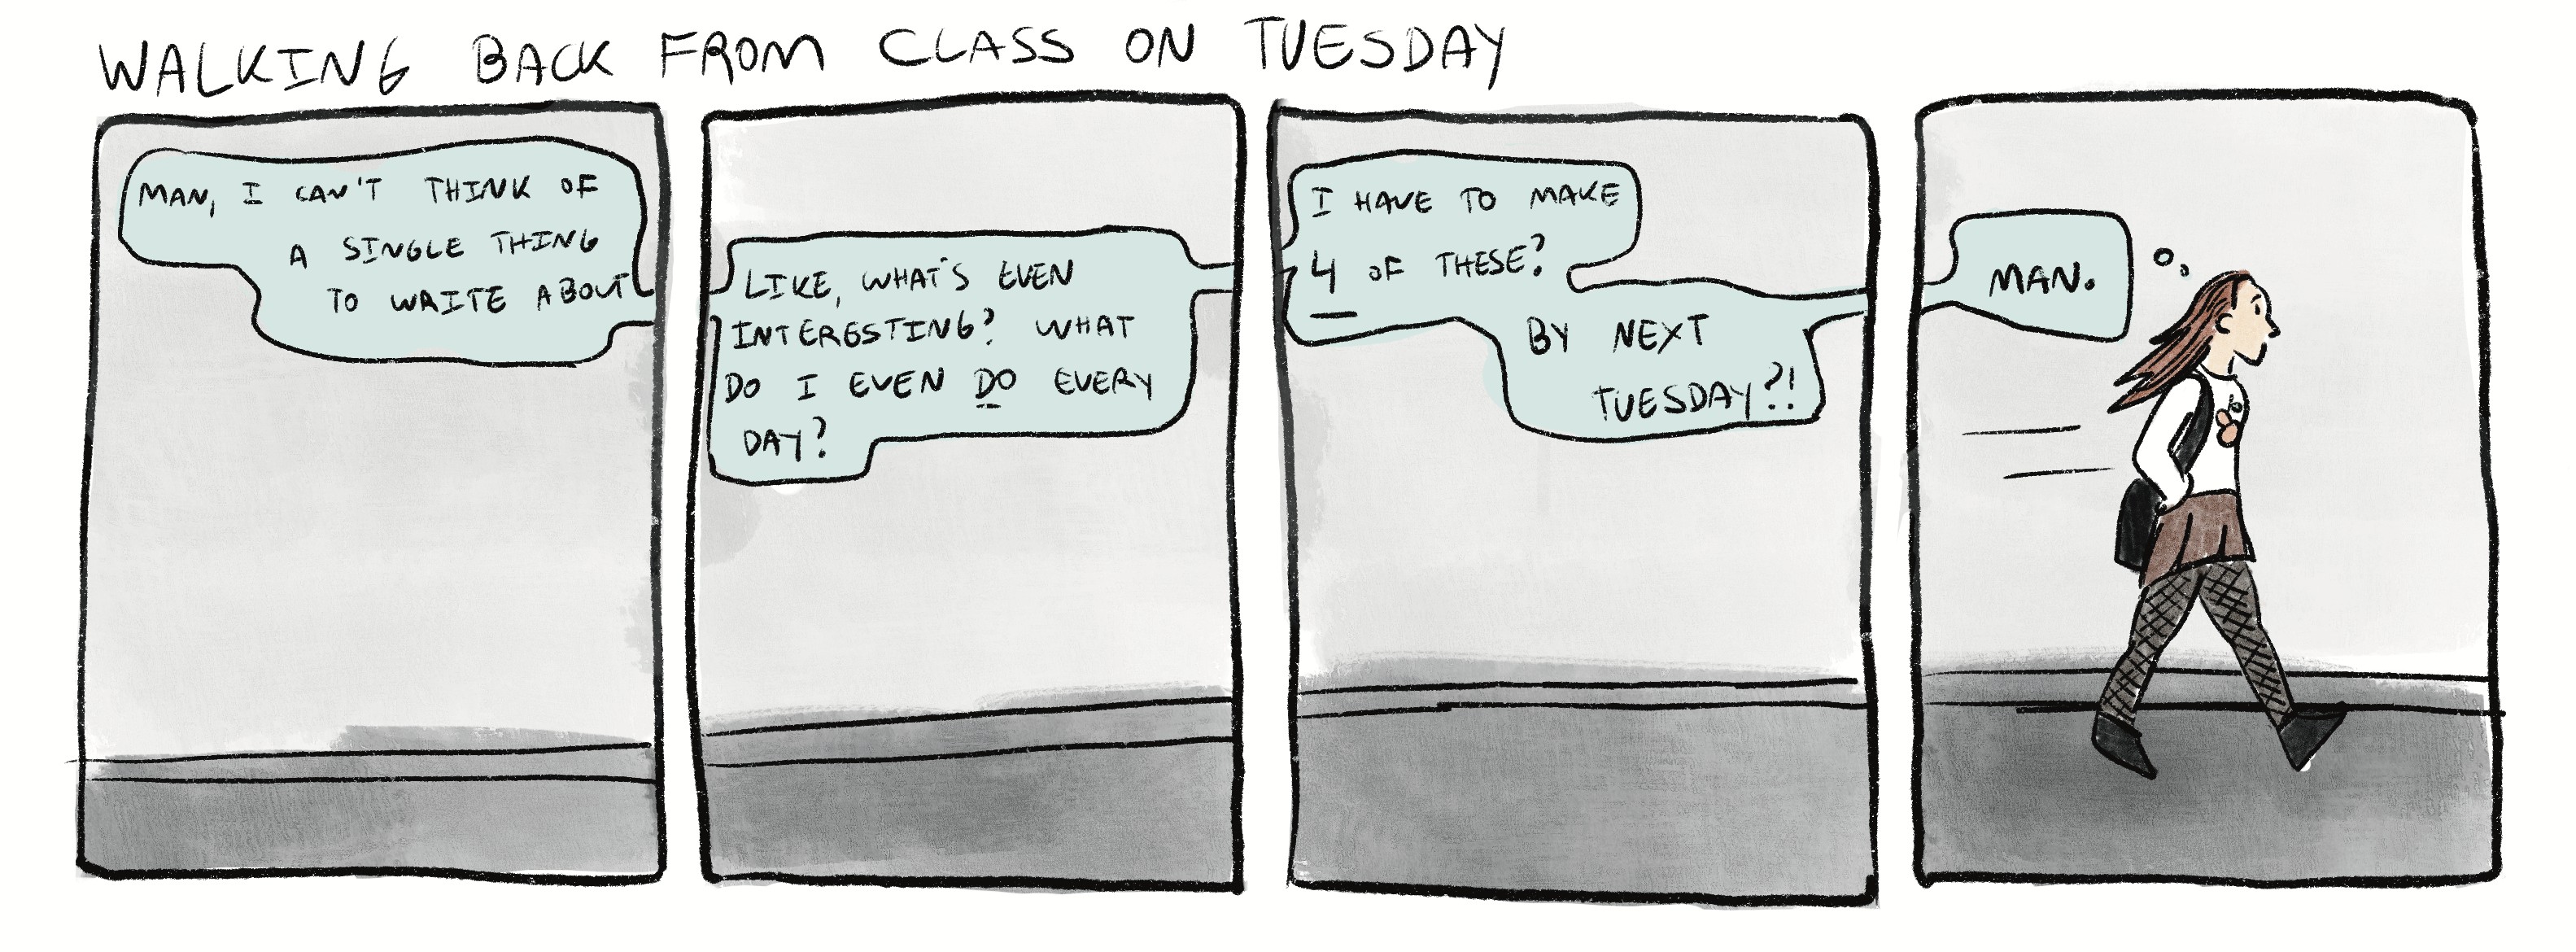 WALKING BACK FROM CLASS ON TUESDAY
MAN, I CAN'T THINK OF
A SINGLE THING
TO WRITE ABOUT
LIKE, WHAT'S EVEN
INTERESTING? WHAT
DO I EVEN DO EVERY
DAY?
I HAVE TO MAKE
4 OF THESE?
BY NEXT
TUESDAY?!
MAN.